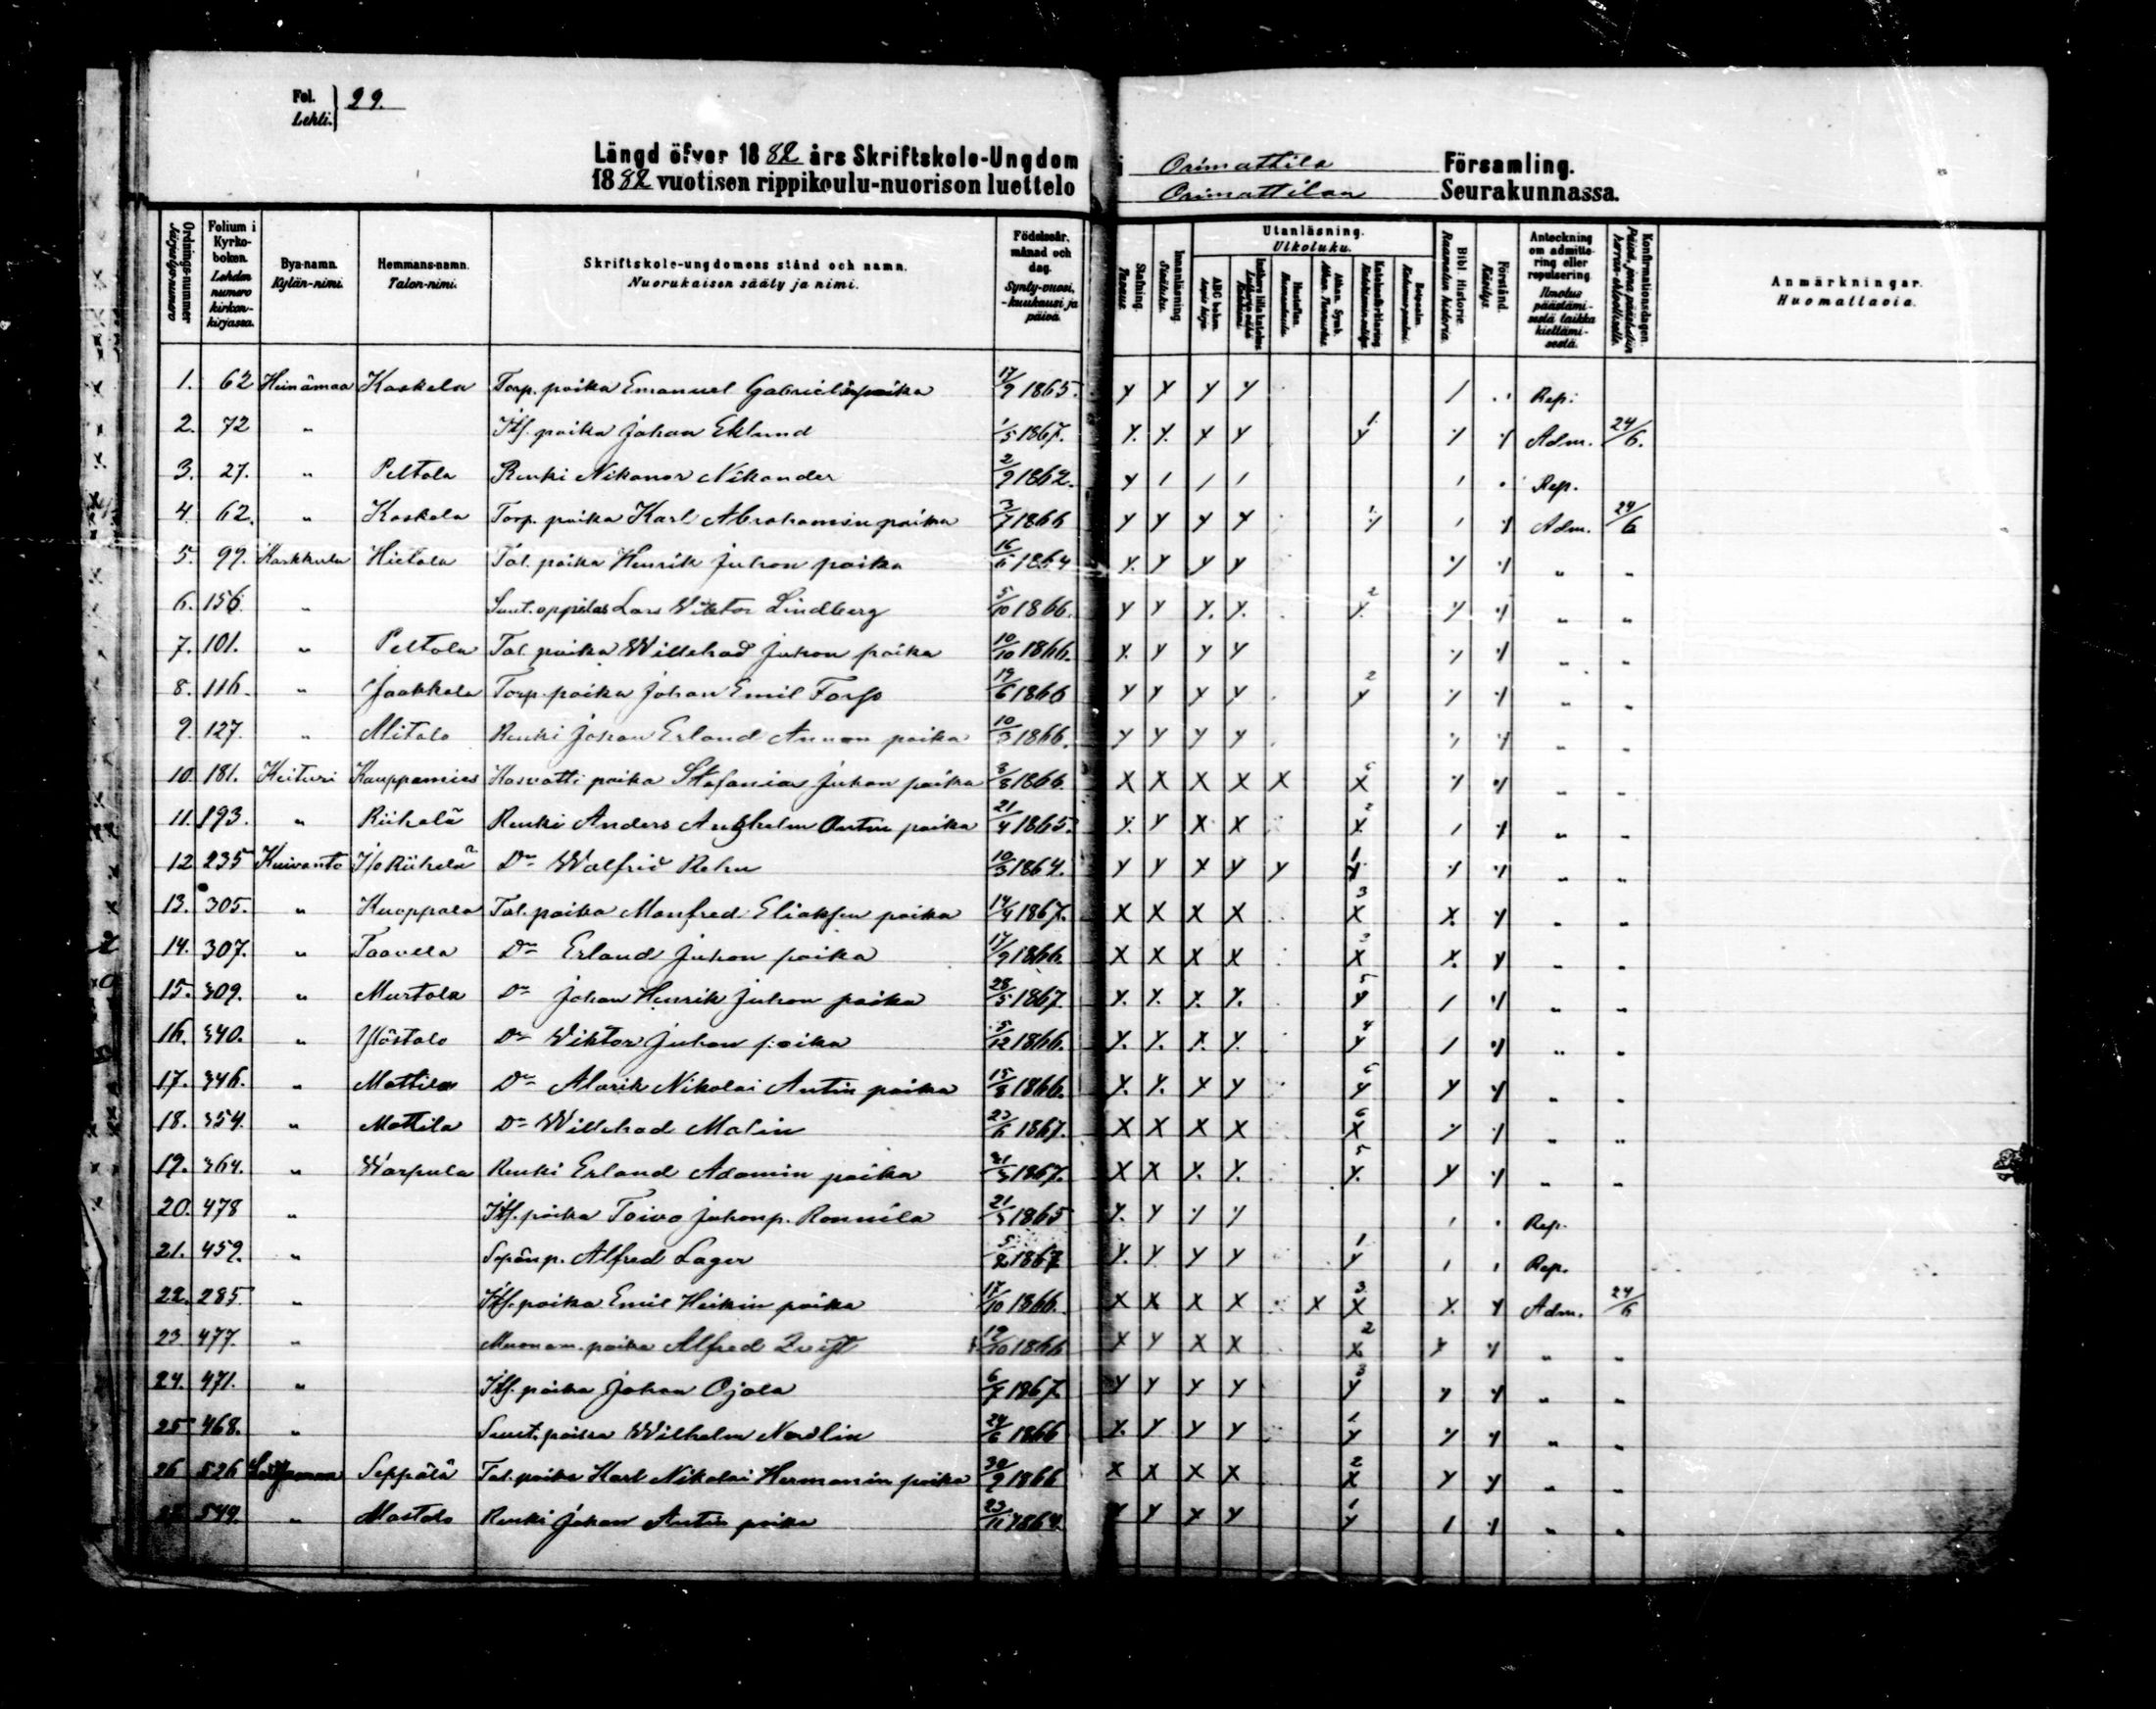 Fol. Lehti. } 29.
Längd öfver 1882 års Skriftskole-Ungdom i Orimattila Församling.
1882 vuotisen rippikoulu-nuorison luettelo Orimattilan Seurakunnassa.
Ordnings-nummer Järjestys-numero
Folium i Kyrko-boken. Lehden numero kirkon-kirjassa.
Bya-namn. Kylän-nimi.
Hemmans-namn. Talon-nimi.
Skriftskole-ungdomens stånd och namn. Nuorukaisen sääty ja nimi.
Födelseår, månad och dag. Synty-vuosi, -kuukausi ja päivä.
Stafning. Tavaus
Innanläsning. Sisäluku.
Utanläsning. Ulkoluku.
ABC boken.
Hustaflan. Huoneentaulu.
Athan. Symb. Athan. Tunnustus.
Bibl. Historie. Raamatun historia.
Förstånd. Käsitys.
Anteckning om admittering eller repulsering. Ilmotus päästämisestä taikka kieltämisestä.
Konfirmationsdagen.
Anmärkningar. Huomattavia.
1. 62 Heinämaa Koskela Torp. poika Emanuel Gabrielinpoika 17/9 1865. y y y y / . . Rep.
2. 72 " Itf. poika Johan Eklund 1/5 1867. y. y. y y 1. y ٪ ٪ Adm. 24/6.
3. 27. " Peltola Renki Nikanor Nikander 2/9 1862. y / / / / . Rep.
4. 62. " Koskela Torp. poika Karl Abrahamin poika 3/7 1866 y y y y / ٪ Adm. 24/6
5. 99. Karkkula Hietala Tal. poika Henrik Juhon poika 16/6 1864 y. y y y ٪ ٪ " "
6. 156. " Suut. oppilas Lars Viktor Lindberg 5/10 1866. y y y. y. 2 y. ٪ ٪ " "
7. 101. " Peltola Tal. poika Willehad Juhon poika 10/10 1866. y. y y y ٪ ٪ " "
8. 116. " Jaakkola Torp. poika Johan Emil Forss 19/6 1866 y y y y 2 y ٪ ٪ " "
9. 127. " Mitalo Renki Johan Erland Annan poika 10/3 1866. y y y y ٪ ٪ " "
10. 181. Keituri Kauppamies Kasvatti poika Stefanias Juhon poika 8/8 1866. X X X X X X ٪ ٪ " "
11. 193. " Riihelä Renki Anders Anshelm Antin poika 21/4 1865. y. y X X 2 X / ٪ " "
12 235 Kuivanto I/o Riihelä Do Walfrid Rehn 10/3 1864. y y X y y 1 y ٪ ٪ " "
13. 305. " Kuoppala Tal. poika Manfred Eliaksen poika 14/4 1867. X X X X 3 X X. y " "
14. 307. " Taavela Do Erland Juhon poika 17/9 1866. X X X X 3 X X. y " "
15. 309. " Murtola Do Johan Henrik Juhon poika 28/5 1867. y. y. y. y. 5 y / ٪ " "
16. 340. " Yöstalo Do Viktor Juhon poika 5/12 1866. y. y. y. y. 4 y / ٪ " "
17. 346. " Mattila Do Alarik Nikolai Antin poika 15/8 1866. y. y. y y 6 y y y " "
18. 354. " Mattila Do Willehad Malin 23/6 1867. X X X X 6 X ٪ ٪ " "
19. 364. " Warpula Renki Erland Adamin poika 21/3 1867. X X y. y. 5 y. y ٪ " "
20. 478 " Itf. poika Toivo Juhonp. Ronnila 21/3 1865 y. y ٪ ٪ / . Rep.
21. 459. " Sepänp. Alfred Lager 5/2 1867 y. y y y 1 y / / Rep.
22. 285. " Itf. poika Emil Heikin poika 17/10 1866. X X X X X 3 X X. y Adm. 24/6
23. 477. " Muonam. poika Alfred 19/10 1866 X y X X 2 X y ٪ " "
24. 471. " Itf. poika Johan Ojala 6/7 1867. y y y y 3 y y y " "
25 468. " Suut. poika Wilhelm Nordlin 24/6 1866 y. y y y 1 y ٪ y " "
26 526 Seppälä Tal. poika Karl Nikolai Hermanin poika 30/9 1866 X X X X 2 X y y " "
549. " Renki Johan Antin poika 23/11 1864. y y y y 1 y / ٪ " "